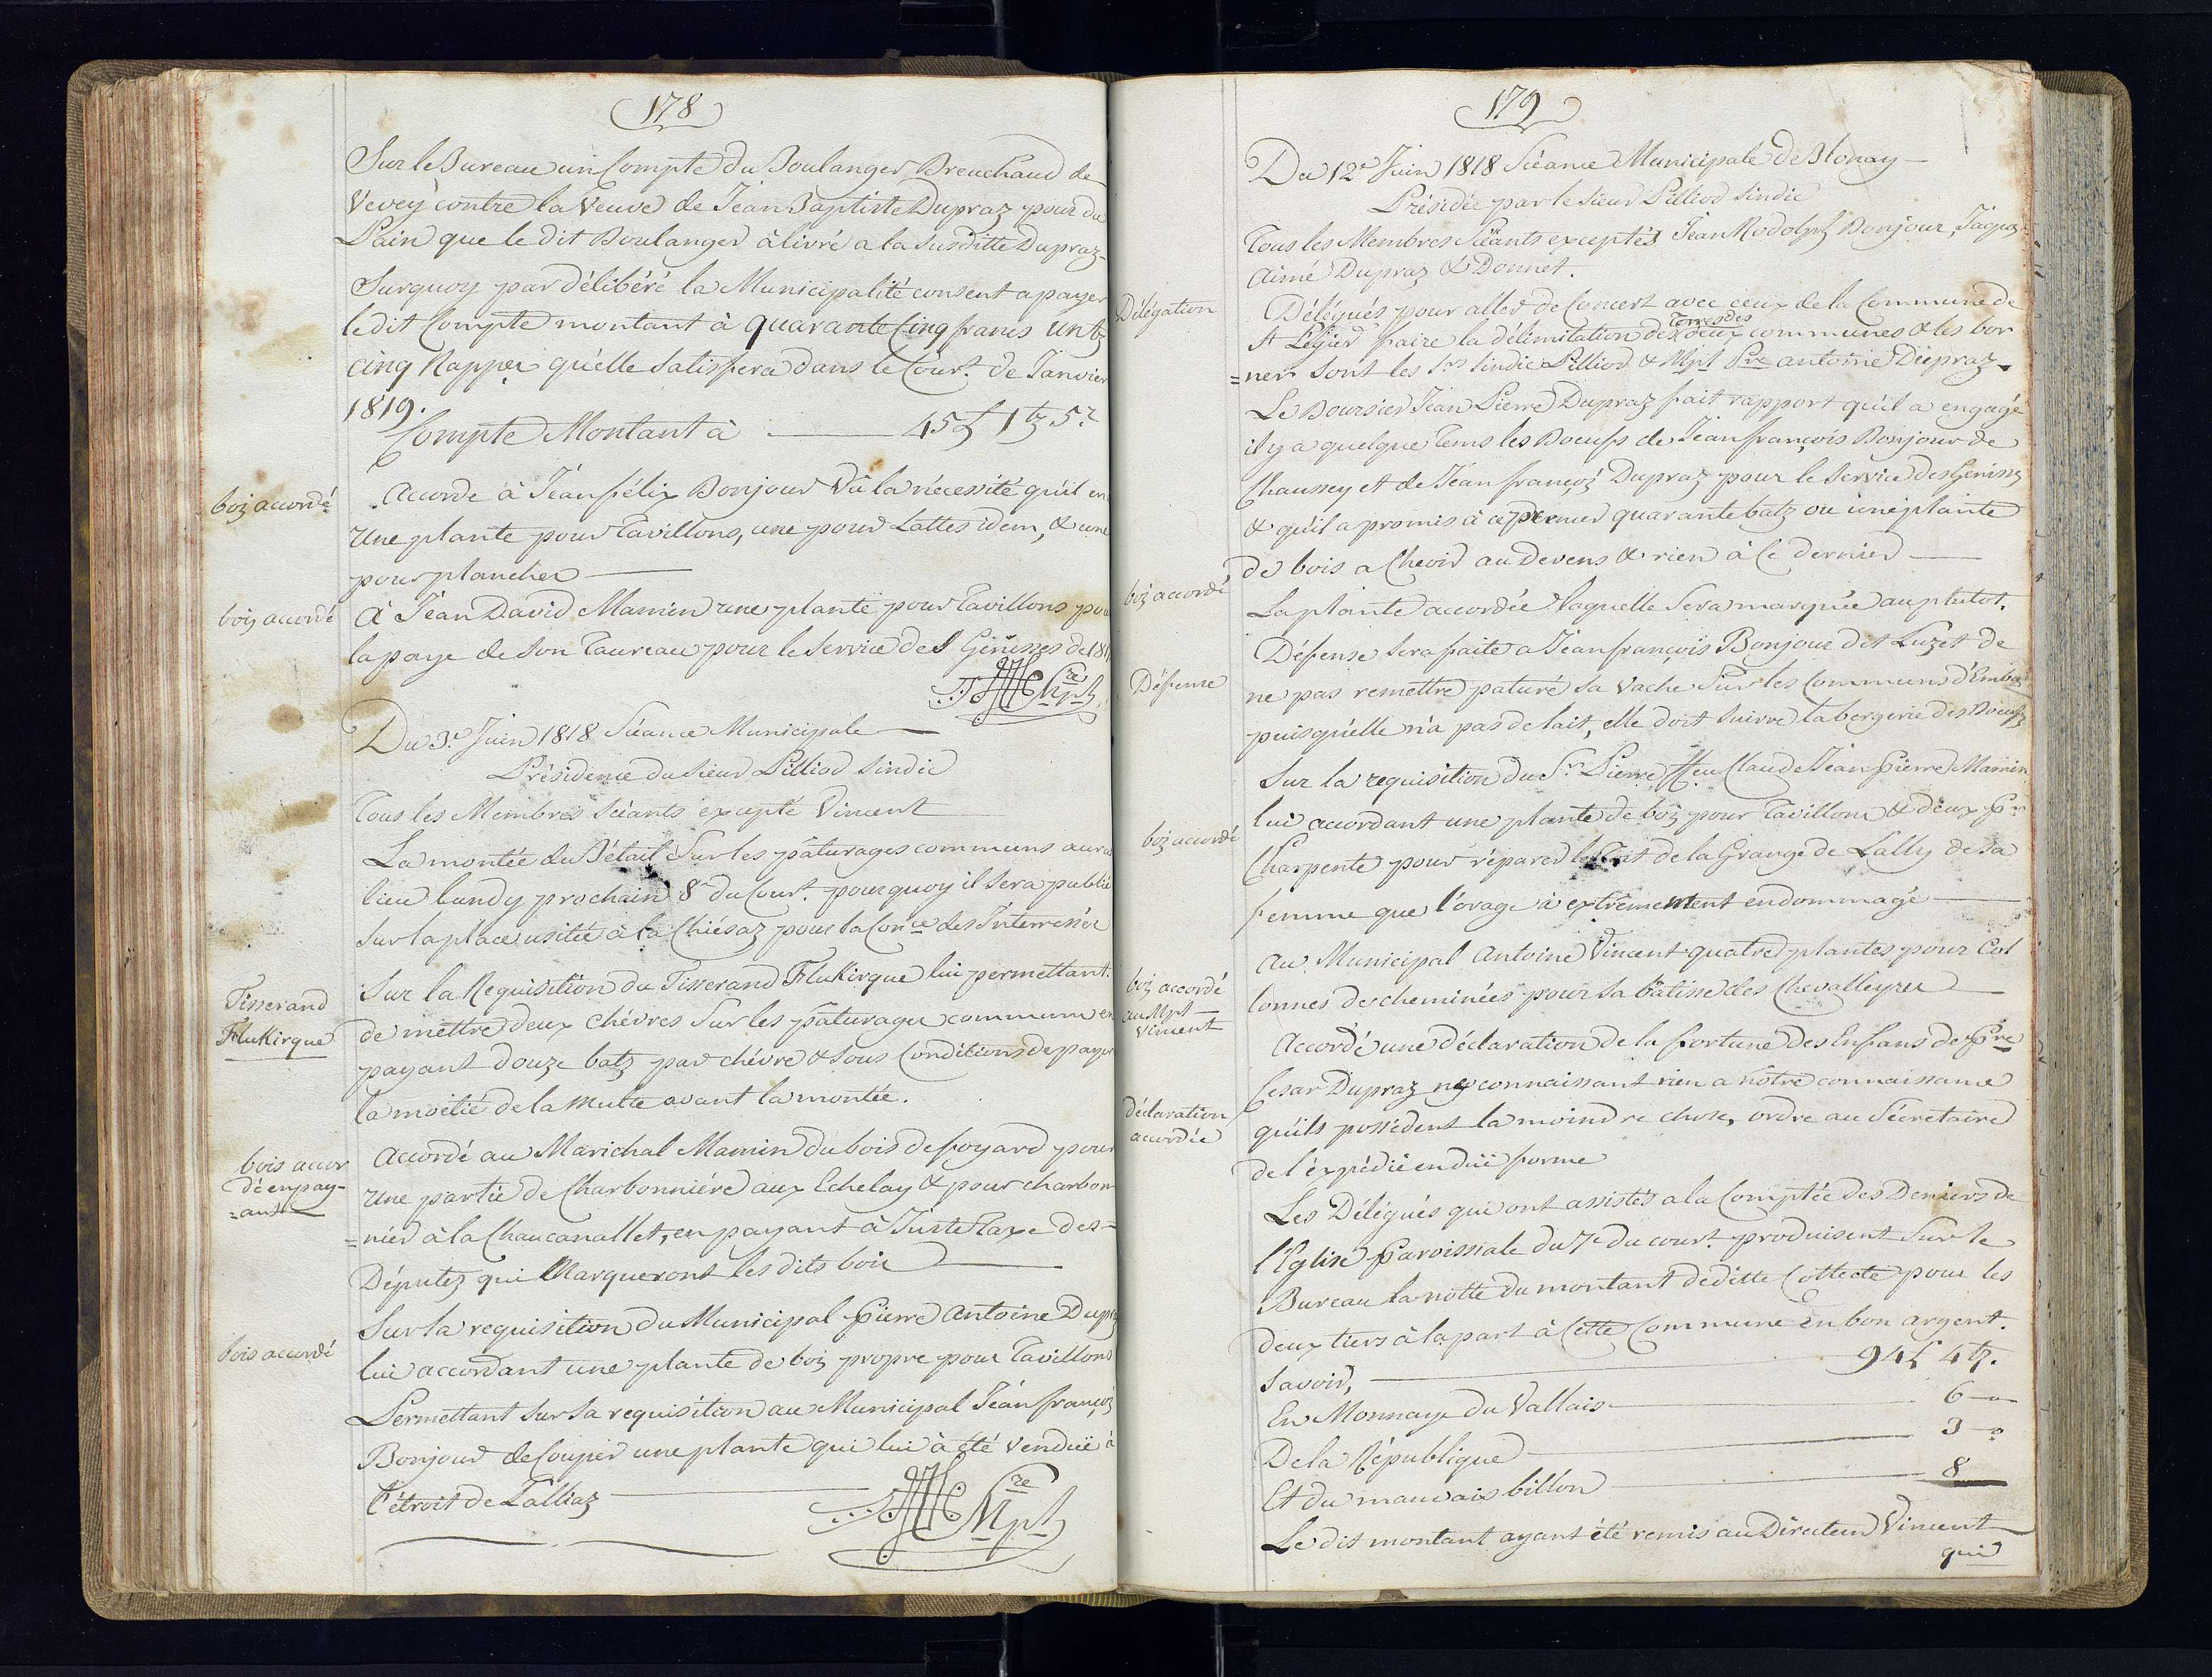 178
Sur le Bureau un Compte du Boulanger Breuchaud de
Vevey contre la Veuve de Jean Baptiste Dupraz pour du
Pain que le dit Boulanger à livré a la susditte Dupraz
Surquoy par délibéré la Municipalité consent a payer
le dit Compte montant à quarante Cinq francs un bz
cinq Rappes qu'elle satisfera dans le Court. de Janvier
1819.
Compte Montant à 45 f 1 bz 5 r
boiz accordé
Accorde à Jean félix Bonjour Vû la nécessité qu'il en
Une plante pour Tavillons, une pour Lattes idem, & une
pour plancher
boiz accordé
à Jean David Mamin une plante pour Tavillons pour
la paye de son Taureau pour le service des Génisses de 181
Du 3e Juin 1818 Séance Municipale
Présidence du Sieur Pilliod Sindic
Tous les Membres Séants excepté Vincent
La montée du Bétail Sur les pâturages communs aura
lieu lundy prochain 8e du Court. pourquoy il sera publié
sur la place usitée à la Chiésaz pour la Con.ce des Interressés
Tisserand
Flukirque
Sur la Requisition du Tisserand Flukirque lui permettant.
de mettre deux chévres Sur les pâturages communs en
payant douze batz par chévre & sous Conditions de payer
la moitié de la mutte avant la montée.
bois accor
dé en pay-
=ant
Accordé au Marichal Mamin du bois de foyard pour
une partie de Charbonniére aux Echelay & pour charbon-
=nier à la Chaucanallet, en payant à Juste Taxe des
Députez qui Marqueront les dits bois
bois accordé
Sur la requisition du Municipal Pierre Antoine Dupraz
lui accordant une plante de boiz propre pour Tavillons
Permettant sur sa requisition au Municipal Jean françoiz
Bonjour de Couper une plante qui lui à été vendue à
l'étroit de Lalliaz
179
Du 12e Juin 1818 Séance Municipale de Blonay
Présidée par le Sieur Pilliod Sindic
Tous les Membres Séants exceptés Jean Rodolph Bonjour, Jaques
Aimé Dupraz & Donnet.
Délégation
Délégués pour aller de Concert avec ceux de la Commune de
St Légier faire la délimitation des Terres des deux communes & les bor
=ner sont les Srs Sindic Pilliod & Mpl Pre antoine Dupraz
Le Boursier Jean Pierre Dupraz fait rapport qu'il a engagé
il y a quelque Tems les Boeufs de Jean françois Bonjour de
Chaussey et de Jean françoiz Dupraz pour le Service des Génisses
& qu'il a promis à ce premier quarante batz ou une plante
de bois a Choix au Devens & rien à Ce dernier
boiz accordé
La plante accordée laquelle Sera marquée au plutot.
Défense
Défense sera faite a Jean françois Bonjour dit Luzet de
ne pas remettre paturé sa Vache Sur les Communs
puisqu'elle n'a pas de lait, elle doit suivre la bergerie des Boeufs
boiz accordé
Sur la requisition du Sr. Pierre ffeu Claude Jean Pierre Mamin
lui accordant une plante de boiz pour Tavillons & deux pr
Charpente pour réparer le Toit de la Grange de Lally de sa
femme que l'orage à extrêmement endommagé
boiz accordé
au Mpl
Vincent
Au Municipal Antoine Vincent quatre plantes pour Col
lonnes de cheminées pour sa bâtisse des Chevalleyres
Déclaration
accordée
Accordé une déclaration de la fortune des Enfans de Pre
Cesar Dupraz ny connaissant rien a notre connaissance
qu'ils possèdent la moindre chose, ordre au Sécretaire
de l'éxpédié en düe forme
Les Délégués qui ont assistés a la Comptée des Deniers de
l'Eglise Paroissiale du 7e du court. produisent Sur le
Bureau la notte du montant de ditte Collecte pour les
deux tiers à la part à Cette Commune En bon argent.
Savoir, 94 f 4 bz.
En Monnaye du Vallais 6
De la République 3
Et du mauvais billon 8
Le dit montant ayant été remis au Directeur Vincent
qui